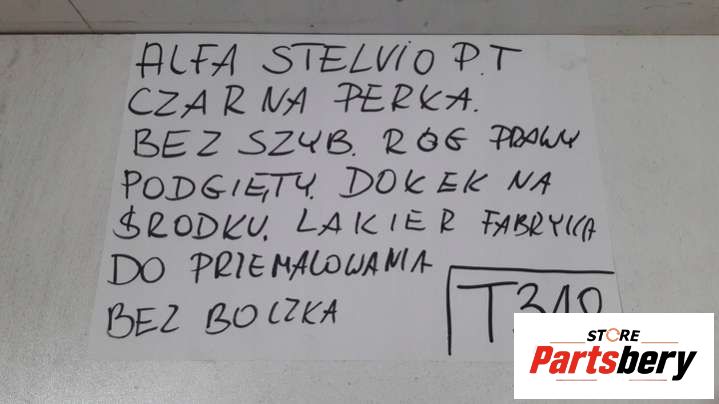 ALFA STELVIO P.T
CZARNA PERKA.
BEZ SZYB. RÓG PRAWY
PODGIĘTY. DOŁEK NA
ŚRODKU. LAKIER FABRYKA
DO PRZEMALOWANIA
BEZ BOCZKA
T310
STORE
Partsbery